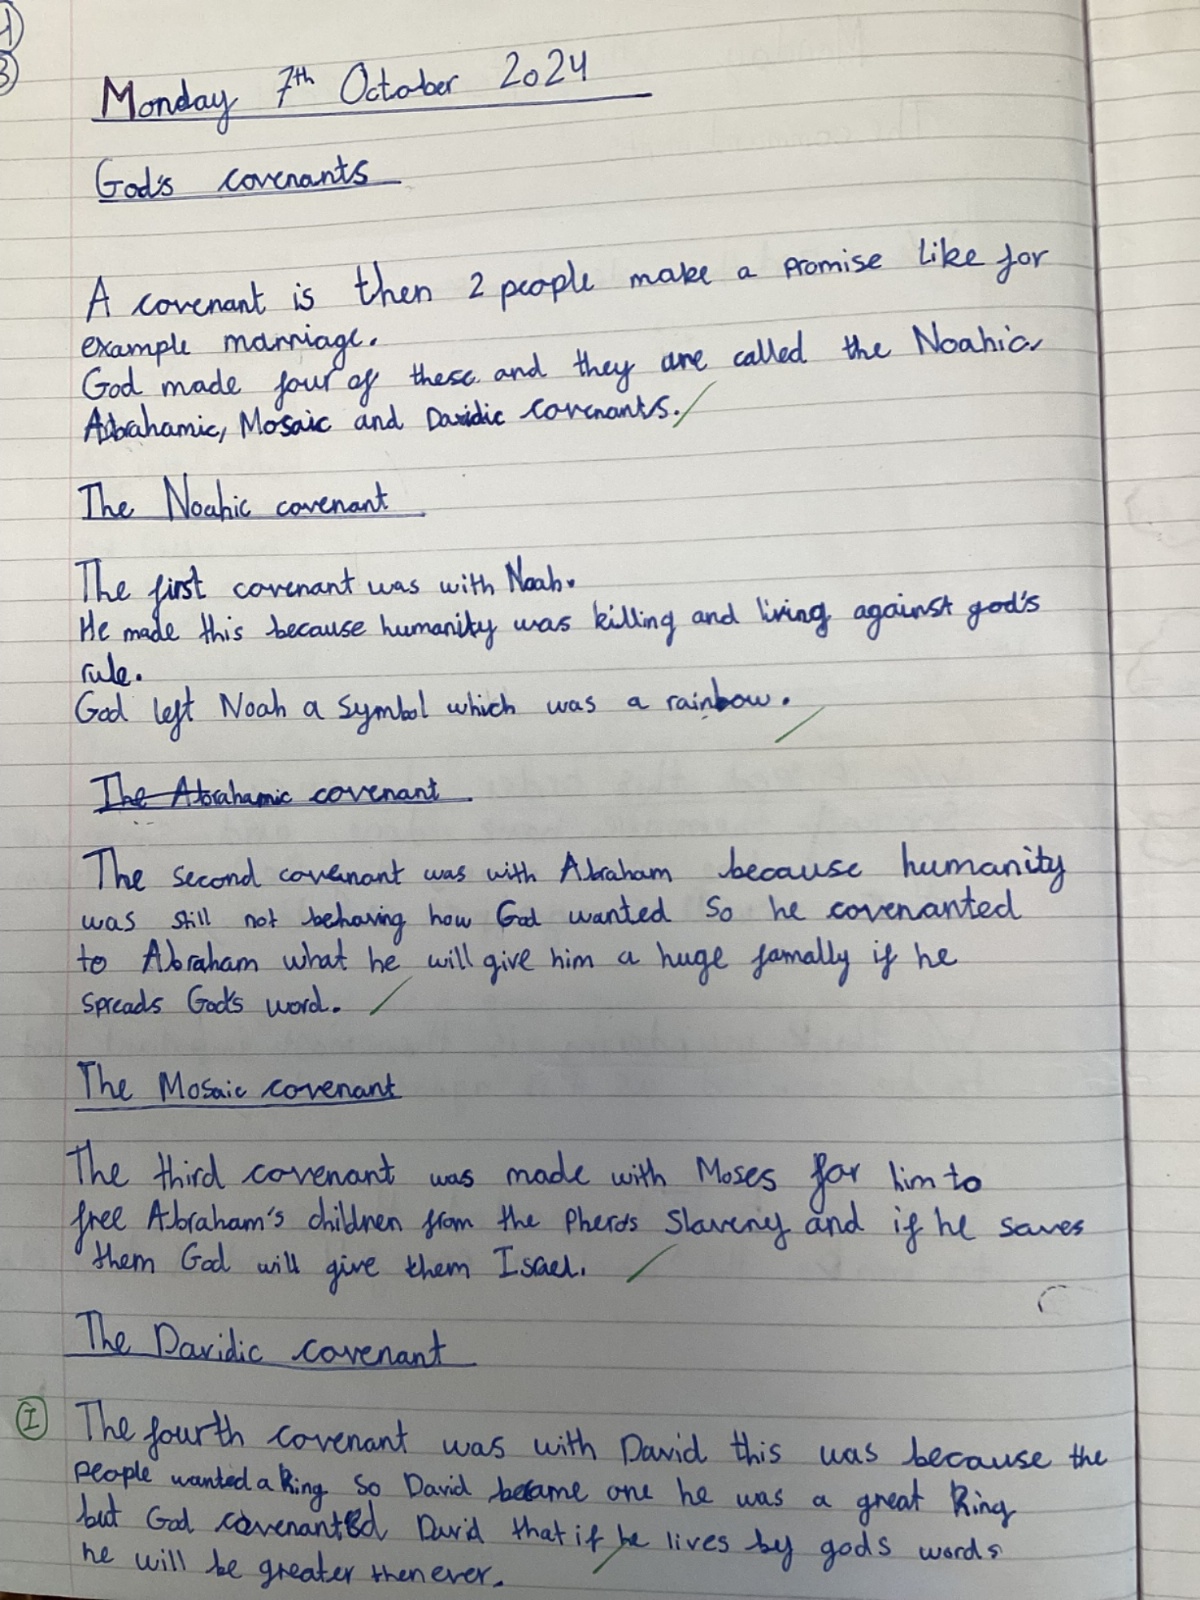 Monday 7th October 2024
God's covenants
A covenant is then 2 people make a promise like for
example marriage.
God made four of these and they are called the Noahic,
Abrahamic, Mosaic and Davidic covenants.
The Noahic covenant
The first covenant was with Noah.
He made this because humanity was killing and living against god's
rule.
God left Noah a symbol which was a rainbow.
The Abrahamic covenant
The second covenant was with Abraham because humanity
was still not behaving how God wanted so he covenanted
to Abraham what he will give him a huge famally if he
spreads God's word.
The Mosaic covenant
The third covenant was made with Moses for him to
free Abraham's children from the Pheros slavery and if he saves
them God will give them Israel.
The Davidic covenant
I The fourth covenant was with David this was because the
people wanted a king so David became one he was a great king
but God covenanted David that if he lives by gods words
he will be greater then ever.